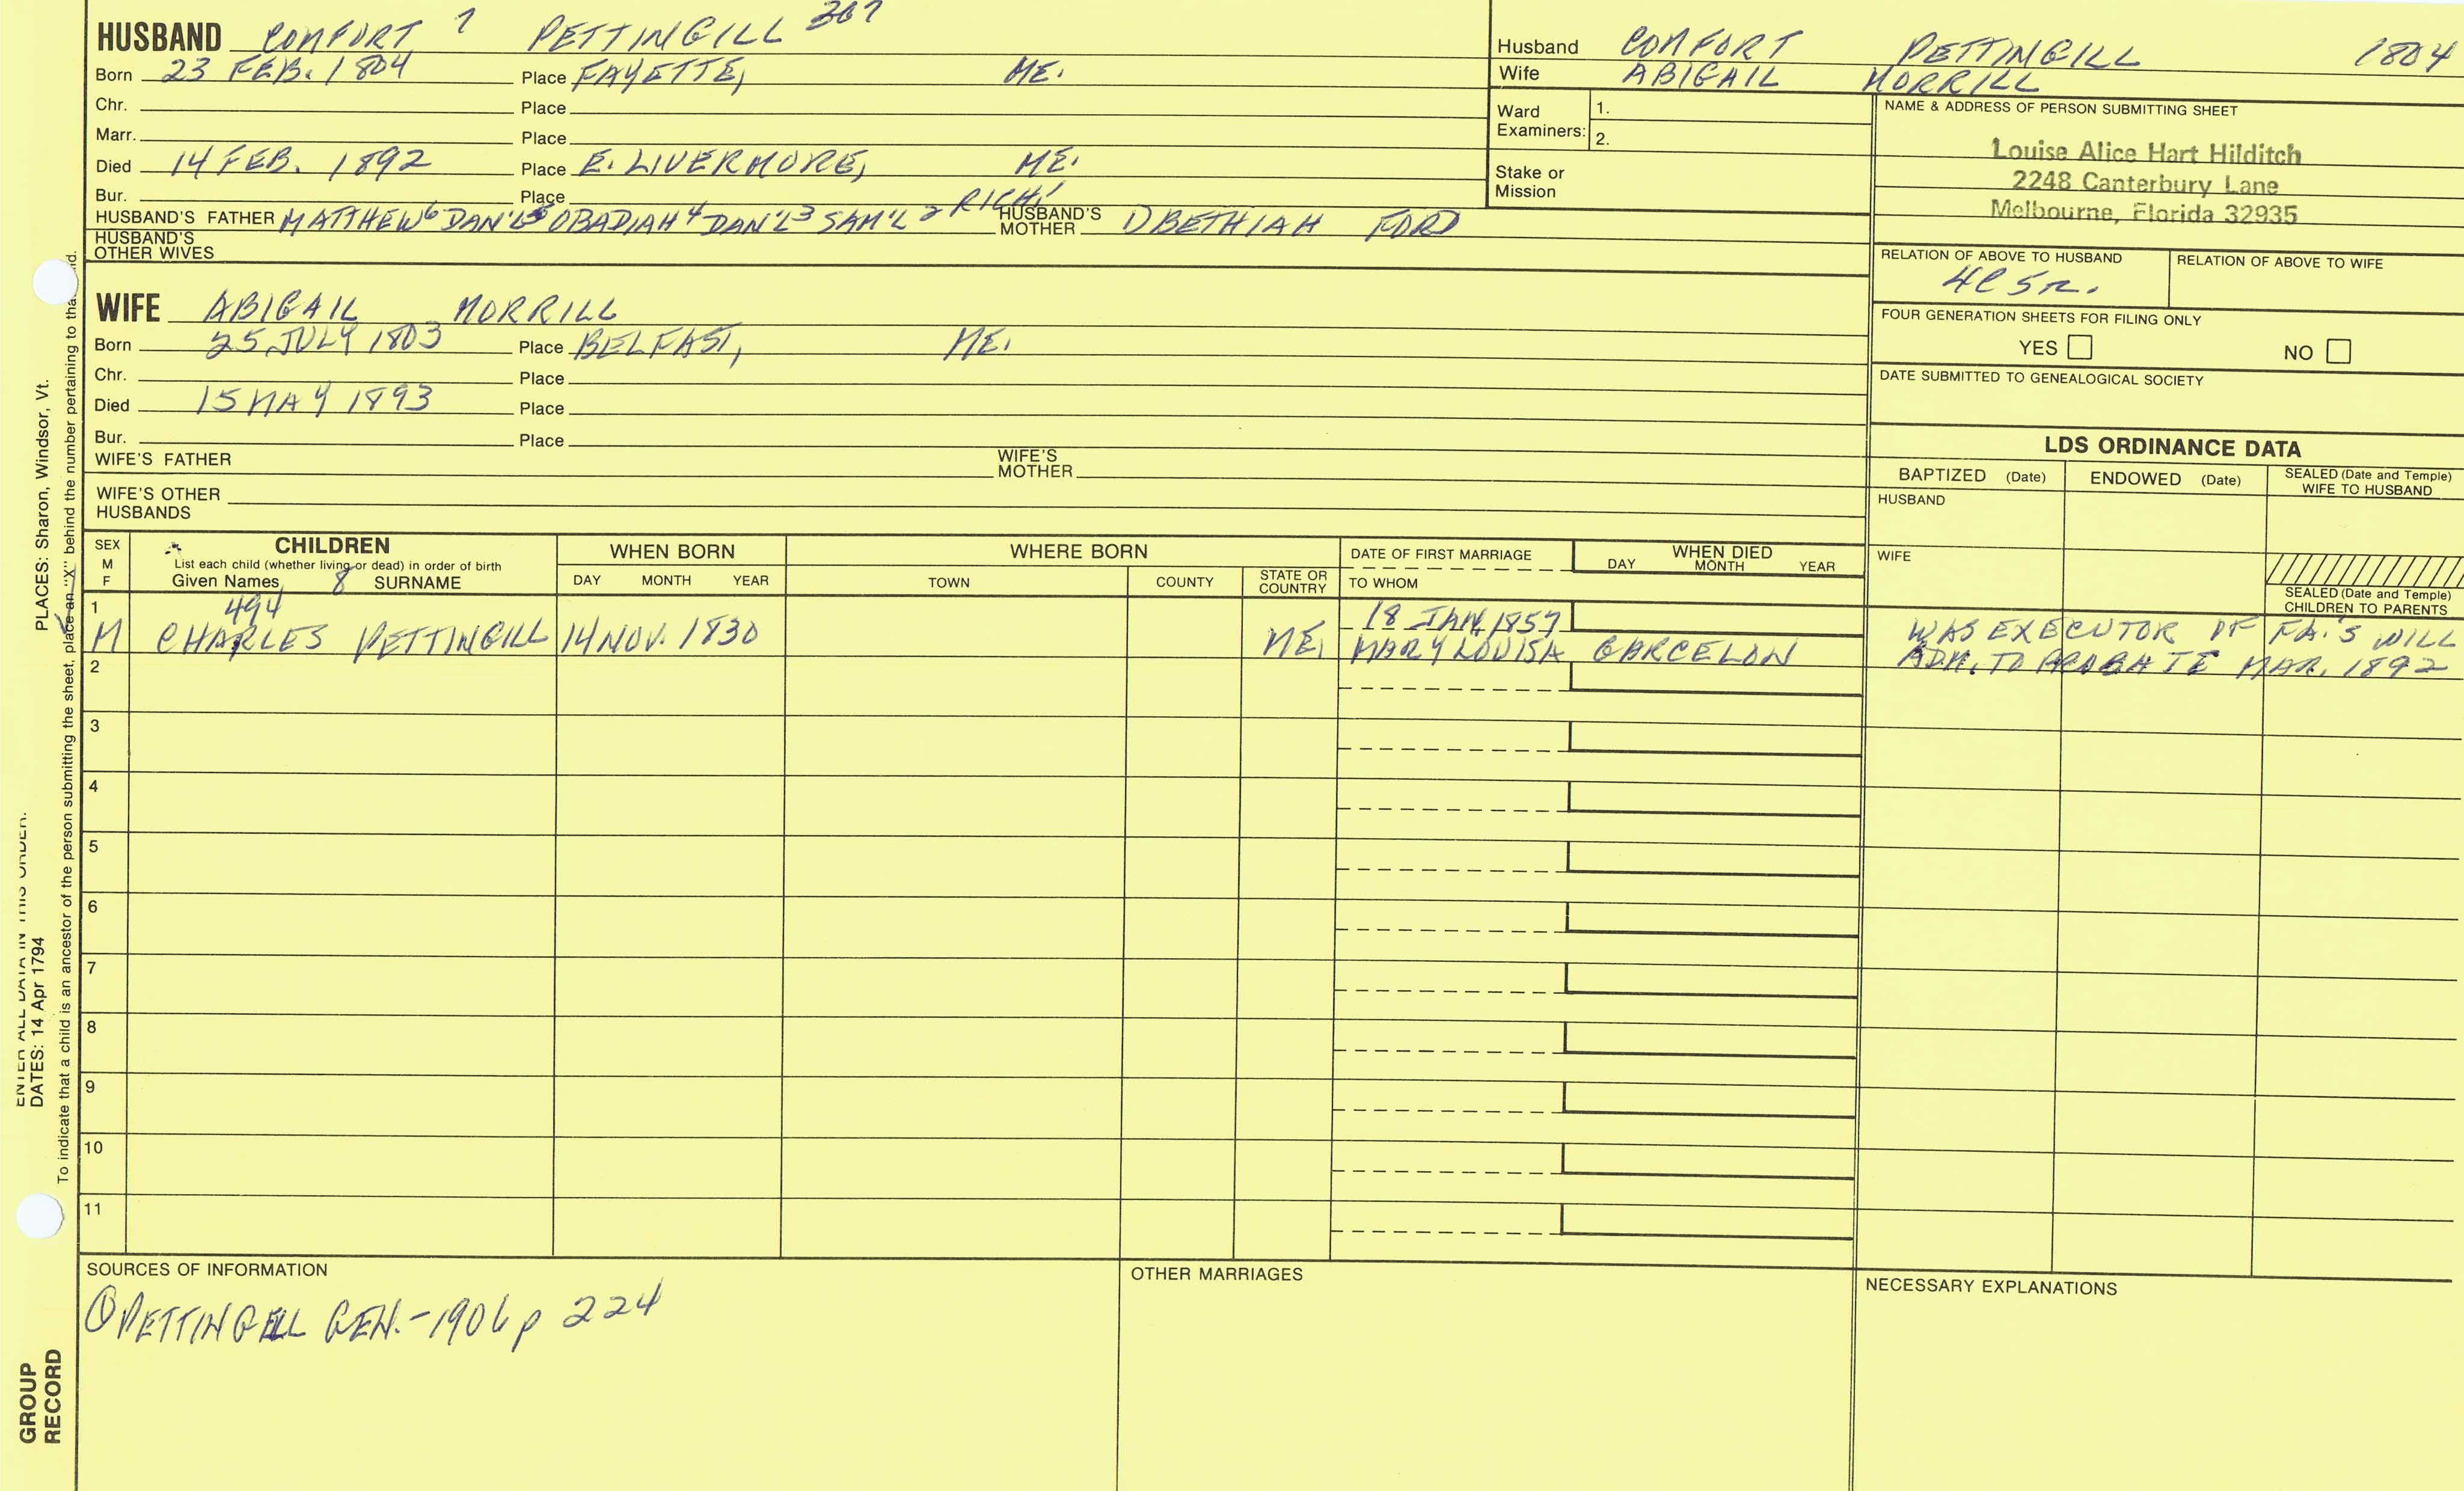 HUSBAND COMFORT 7 PETTINGILL 307
Born 23 FEB. 1804 Place FAYETTE, ME.
Chr. Place
Marr. Place
Died 14 FEB. 1892 Place E. LIVERMORE, ME.
Bur. Place
HUSBAND'S FATHER MATTHEW 6 DAN'L 5 OBADIAH 4 DAN'L 3 SAM'L 2 RICH. 1 HUSBAND'S MOTHER BETHIAH FORD
HUSBAND'S OTHER WIVES
WIFE ABIGAIL MORRILL
Born 25 JULY 1803 Place BELFAST, ME.
Chr. Place
Died 15 MAY 1893 Place
Bur. Place
WIFE'S FATHER WIFE'S MOTHER
WIFE'S OTHER HUSBANDS
Husband COMFORT PETTINGILL 1804
Wife ABIGAIL MORRILL
Ward Examiners: 1.
2.
Stake or Mission
NAME & ADDRESS OF PERSON SUBMITTING SHEET
Louise Alice Hart Hilditch
2248 Canterbury Lane
Melbourne, Florida 32935
RELATION OF ABOVE TO HUSBAND RELATION OF ABOVE TO WIFE
4C 5R.
FOUR GENERATION SHEETS FOR FILING ONLY
YES NO
DATE SUBMITTED TO GENEALOGICAL SOCIETY
LDS ORDINANCE DATA
BAPTIZED (Date) ENDOWED (Date) SEALED (Date and Temple) WIFE TO HUSBAND
HUSBAND
WIFE
SEALED (Date and Temple) CHILDREN TO PARENTS
SEX M F
CHILDREN
List each child (whether living or dead) in order of birth
Given Names 8 SURNAME
WHEN BORN
DAY MONTH YEAR
WHERE BORN
TOWN COUNTY STATE OR COUNTRY
DATE OF FIRST MARRIAGE
TO WHOM
WHEN DIED
DAY MONTH YEAR
1 494 18 JAN. 1857
M CHARLES PETTINGILL 14 NOV. 1830 ME. MARY LOUISA GARCELON
WAS EXECUTOR OF FA.'S WILL
ADM. TO PROBATE MAR. 1892
2
3
4
5
6
7
8
9
10
11
SOURCES OF INFORMATION
① PETTINGELL GEN.-1906 p 224
OTHER MARRIAGES
NECESSARY EXPLANATIONS
ENTER ALL DATA IN THIS ORDER:
DATES: 14 Apr 1794 PLACES: Sharon, Windsor, Vt.
To indicate that a child is an ancestor of the person submitting the sheet, place an "X" behind the number pertaining to that
GROUP
RECORD